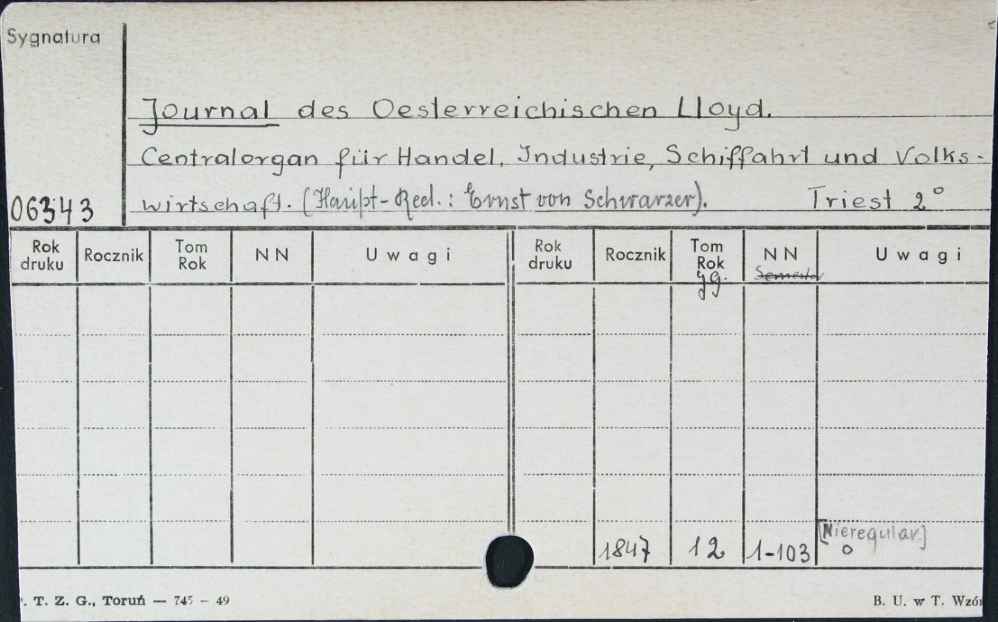 Sygnatura
Journal des Oesterreichischen Lloyd.
Centralorgan für Handel, Industrie, Schiffahrt und Volks-
06343 wirtschaft. (Haupt-Red.: Ernst von Schwarzer). Triest 2°
Rok druku Rocznik Tom Rok NN Uwagi Rok druku Rocznik Tom Rok Jg. NN Semester Uwagi
1847 12 1-103 [Nieregular.]
T. Z. G., Toruń — 745 – 49 B. U. w T. Wzór